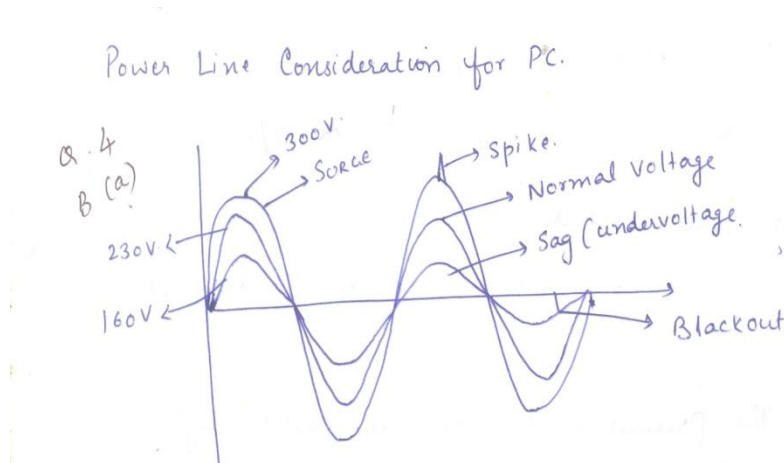 Power Line Consideration for PC.
Q. 4
B (a)
300V.
SURGE
230V.
160V
Spike.
Normal Voltage
Sag (undervoltage.
Blackout